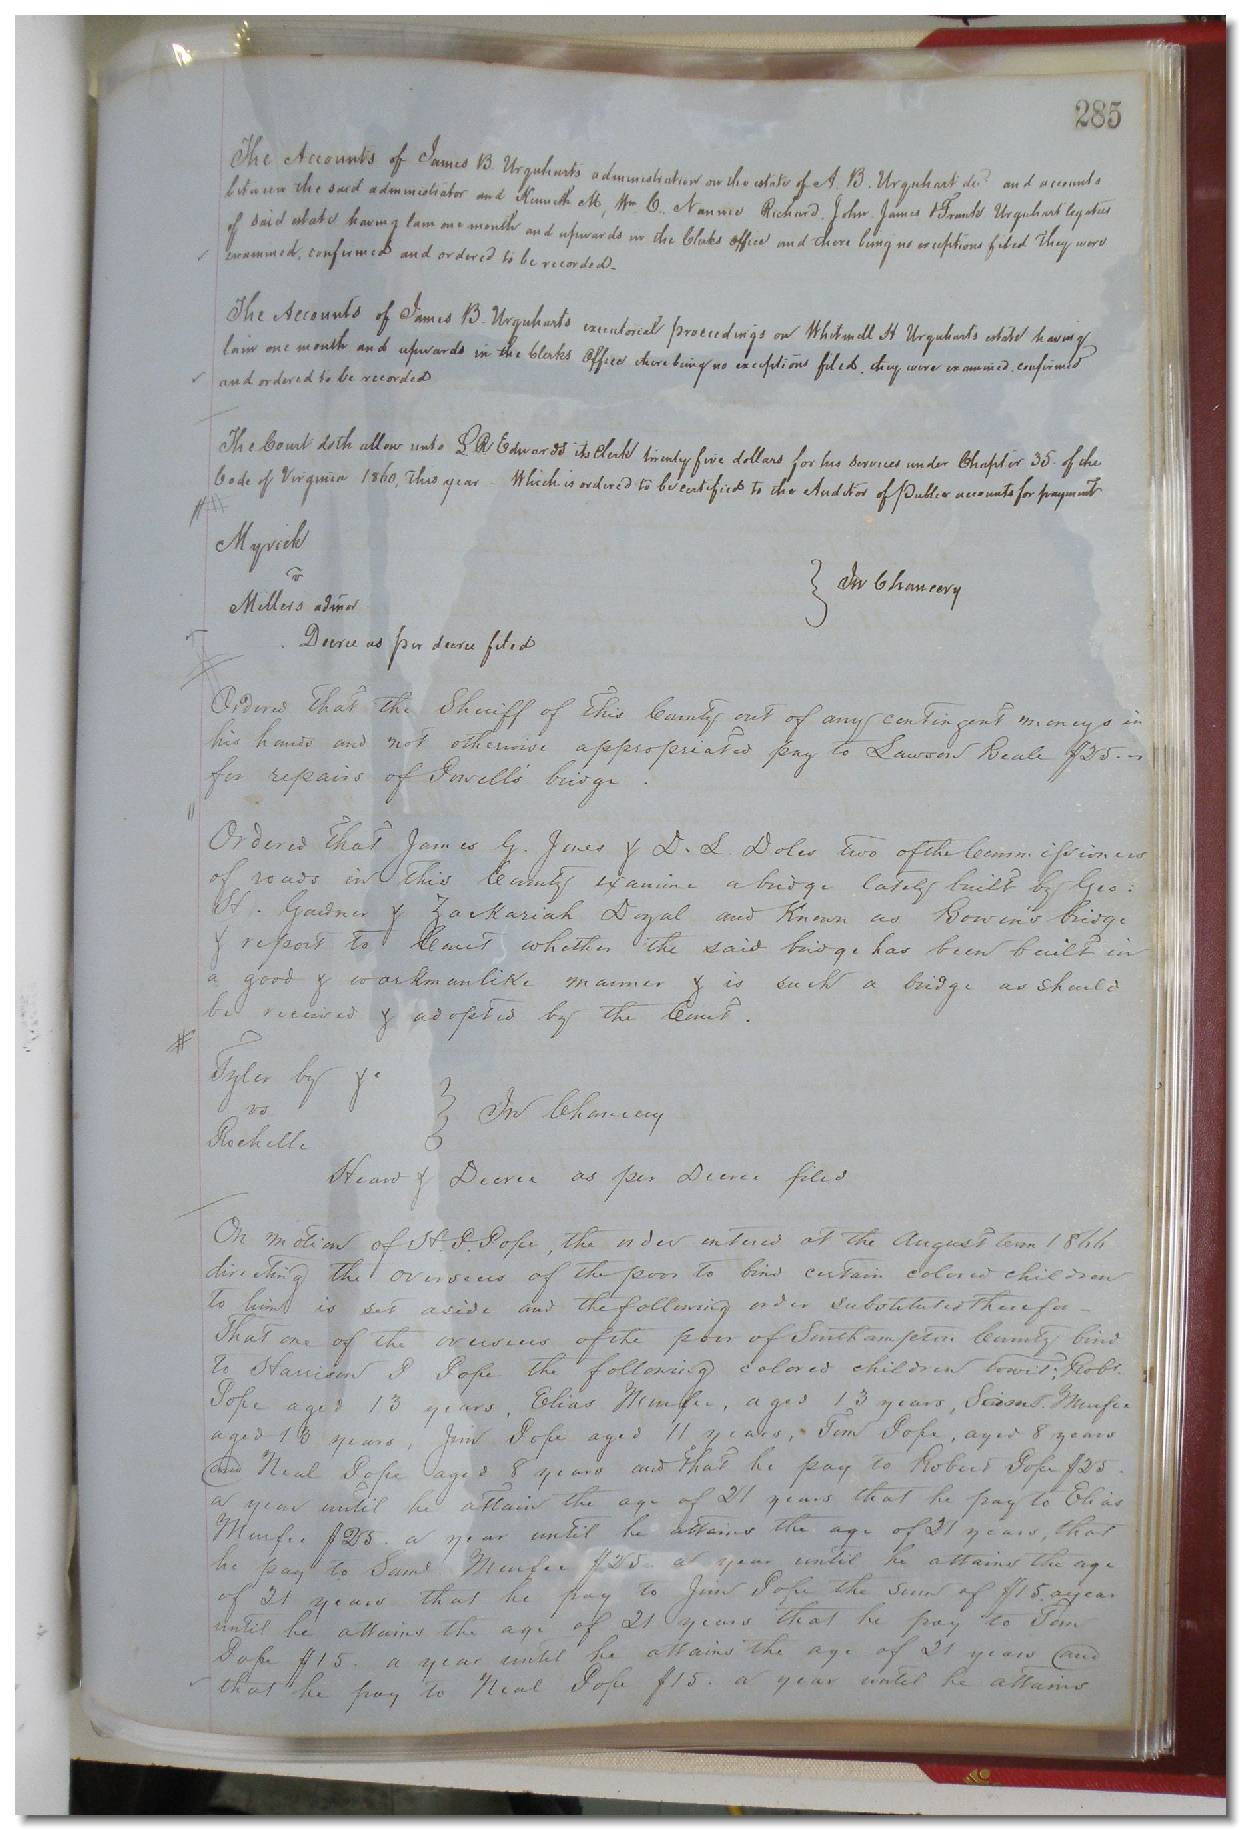 285
The Accounts of James B. Urquharts administration on the estate of A. B. Urquhart decd and accounts
between the said administrator and Kenneth M, Wm C. Nannie Richard. John. James & Frank Urquhart legatees
of said estate having lain one month and upwards in the Clerks office and there being no exceptions filed They were
examined, confirmed and ordered to be recorded.
The Accounts of James B. Urquharts executorial proceedings on Whitmell H Urquharts estate having
lain one month and upwards in the Clerks Office there being no exceptions filed, they were examined. confirmed
and ordered to be recorded
The Court doth allow unto L R Edwards its Clerk twenty five dollars for his services under Chapter 35 of the
Code of Virginia 1860, this year Which is ordered to be certified to the Auditor of Public accounts for payment
Myrick
v
Millers admor } In Chancery
Decree as per decree filed
Ordered that the Sheriff of this County out of any contingent moneys in
his hands and not otherwise appropriated pay to Lawson Beale $25.
for repairs of Powells bridge.
Ordered that James G. Jones & D. L. Doles two of the Commissioners
of roads in this County examine a bridge lately built by Geo:
H. Gardner & Zackariah Doyal and Known as Bowins bridge
& report to Court whether the said bridge has been built in
a good & workmanlike manner & is such a bridge as should
be received & adopted by the Court.
Tyler by &c
vs } In Chancery
Rochelle
Heard & Decree as per Decree filed
On motion of H. P. Pope, the order entered at the August term 1866
directing the overseers of the poor to bind certain colored children
to him is set aside and the following order substituted therefor-
That one of the overseers of the poor of Southampton County bind
to Harrison P Pope the following colored children towit: Robt.
Pope aged 13 years, Elias Murfee, aged 13 years, Murfee
aged 13 years, Jim Pope aged 11 years, Tom Pope, aged 8 years
and Neal Pope aged 8 years and that he pay to Robert Pope $25.
a year until he attain the age of 21 years that he pay to Elias
Murfee $25. a year until he attains the age of 21 years, that
he pay to Saml Murfee $25. a year until he attains the age
of 21 years that he pay to Jim Pope the sum of $15. a year
until he attains the age of 21 years that he pay to Tom
Pope $15. a year until he attains the age of 21 years and
that he pay to Neal Pope $15. a year until he attains